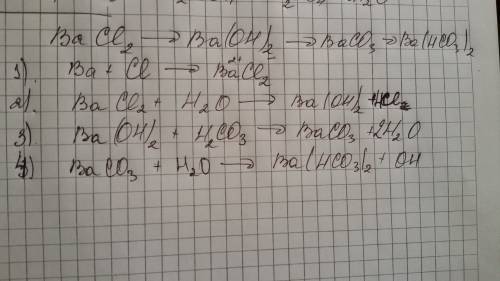 BaCl₂ → Ba(OH)₂ → BaCO₃ → Ba(HCO₃)₂
1). Ba + Cl → Ba²⁺Cl₂⁻
2). BaCl₂ + H₂O → Ba(OH)₂ +
3) Ba(OH)₂ + H₂CO₃ → BaCO₃ + 2H₂O
4) BaCO₃ + H₂O → Ba(HCO₃)₂ + OH